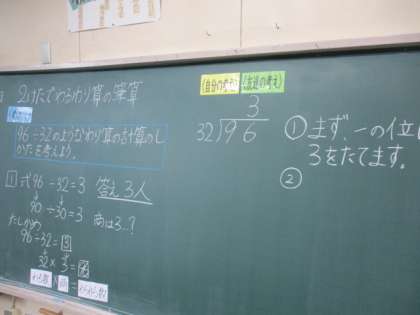 2けたでわるわり算の筆算
96÷32のようなわり算の計算のし
かたを考えよう。
1 式 96÷32=3 答え 3人
90÷30=3 商は3…?
たしかめ
96÷32=3
32×3=96
わる数 商 わられる数
(自分の考え) (友達の考え)
3
32)96
① まず、一の位に
3をたてます。
②